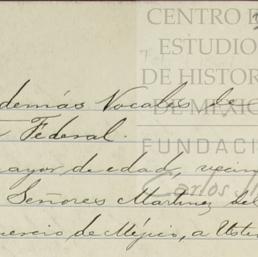 CENTRO D
ESTUDIO
DE HISTOR
DE MÉXIC
FUNDACI
Carlos
demás Vocales de
Federal.
mayor de edad, vecin
Señores Martinez del
mercio de Méjico, a Uste